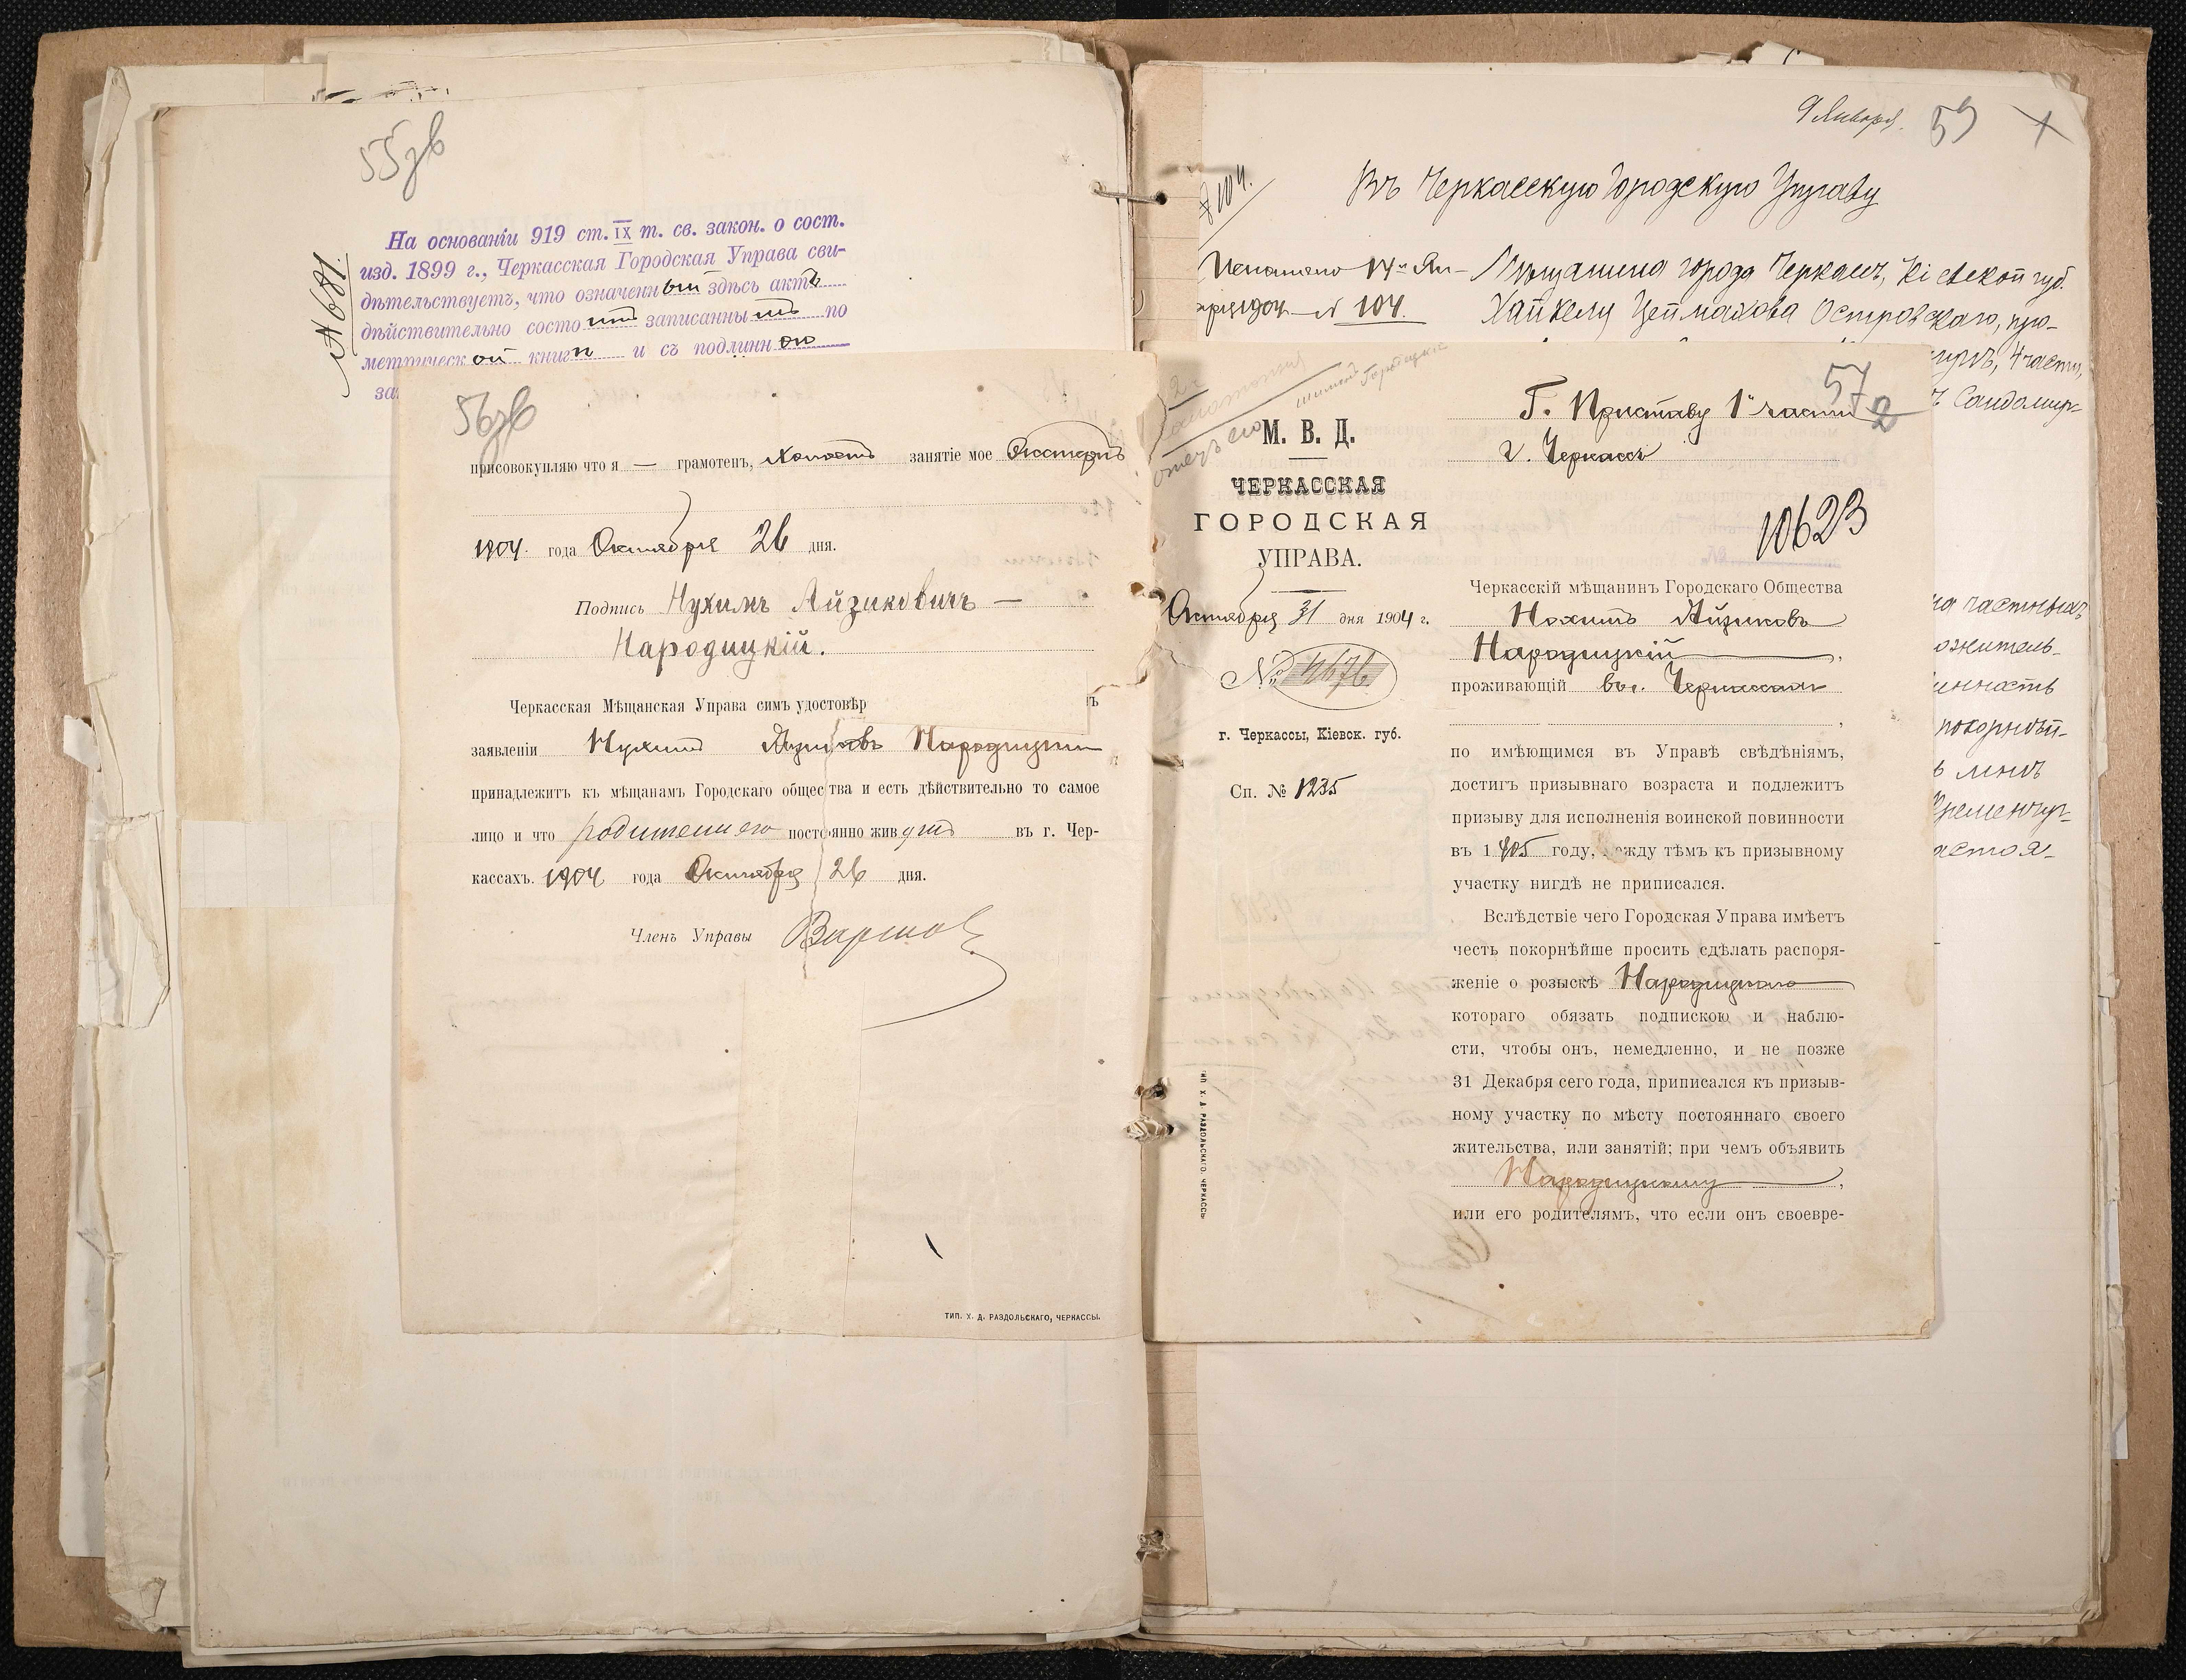 55зв
№ 681.
На основаніи 919 ст. IX т. св. закон. о сост.
изд. 1899 г., Черкасская Городская Управа сви-
дѣтельствуетъ, что означенный здѣсь актъ
дѣйствительно состоитъ записаннымъ по
метрической книгѣ и съ подлинною
за
56зв
присовокупляю что я — грамотенъ, холостъ занятіе мое Экстернъ
1904 года Октября 26 дня.
Подпись Нухимъ Айзиковичъ —
Народицкій.
Черкасская Мѣщанская Управа симъ удостовѣр
ъ
заявленіи Нухимъ Айзиковъ Народицкій
принадлежитъ къ мѣщанамъ Городскаго общества и есть дѣйствительно то самое
лицо и что родители его постоянно живутъ въ г. Чер-
кассахъ. 1904 года Октября 26 дня.
Членъ Управы
ТИП. Х. Д. РАЗДОЛЬСКАГО, ЧЕРКАССЫ.
9 Января. 59
Въ Черкасскую Городскую Управу
104.
Исполнено 14го Ян-
варя 1904 № 104.
Мѣщанина города Черкасъ, Кіевской губ.
Хайкеля Островскаго, про-
4 части,
Сандомир-
на частныхъ
ожитель-
инность
покорнѣй-
ь мнѣ
Кременчуг-
астоя-
57
2
отецъ его
М. В. Д.
ЧЕРКАССКАЯ
ГОРОДСКАЯ
УПРАВА.
Октября 31 дня 1904 г.
№ 4676
г. Черкассы, Кіевск. губ.
Сп. № 1235
ТИП. Х. Д. РАЗДОЛЬСКАГО, ЧЕРКАССЫ
Г. Приставу 1й части
г. Черкассъ
10623
Черкасскій мѣщанинъ Городскаго Общества
Нохимъ Айзиковъ
Народицкій,
проживающій въ г. Черкассахъ
,
по имѣющимся въ Управѣ свѣдѣніямъ,
достигъ призывнаго возраста и подлежитъ
призыву для исполненія воинской повинности
въ 1905 году, между тѣмъ къ призывному
участку нигдѣ не приписался.
Вслѣдствіе чего Городская Управа имѣетъ
честь покорнѣйше просить сдѣлать распоря-
женіе о розыскѣ Народицкаго
котораго обязать подпискою и наблю-
сти, чтобы онъ, немедленно, и не позже
31 Декабря сего года, приписался къ призыв-
ному участку по мѣсту постояннаго своего
жительства, или занятій; при чемъ объявить
Народицкому,
или его родителямъ, что если онъ своевре-